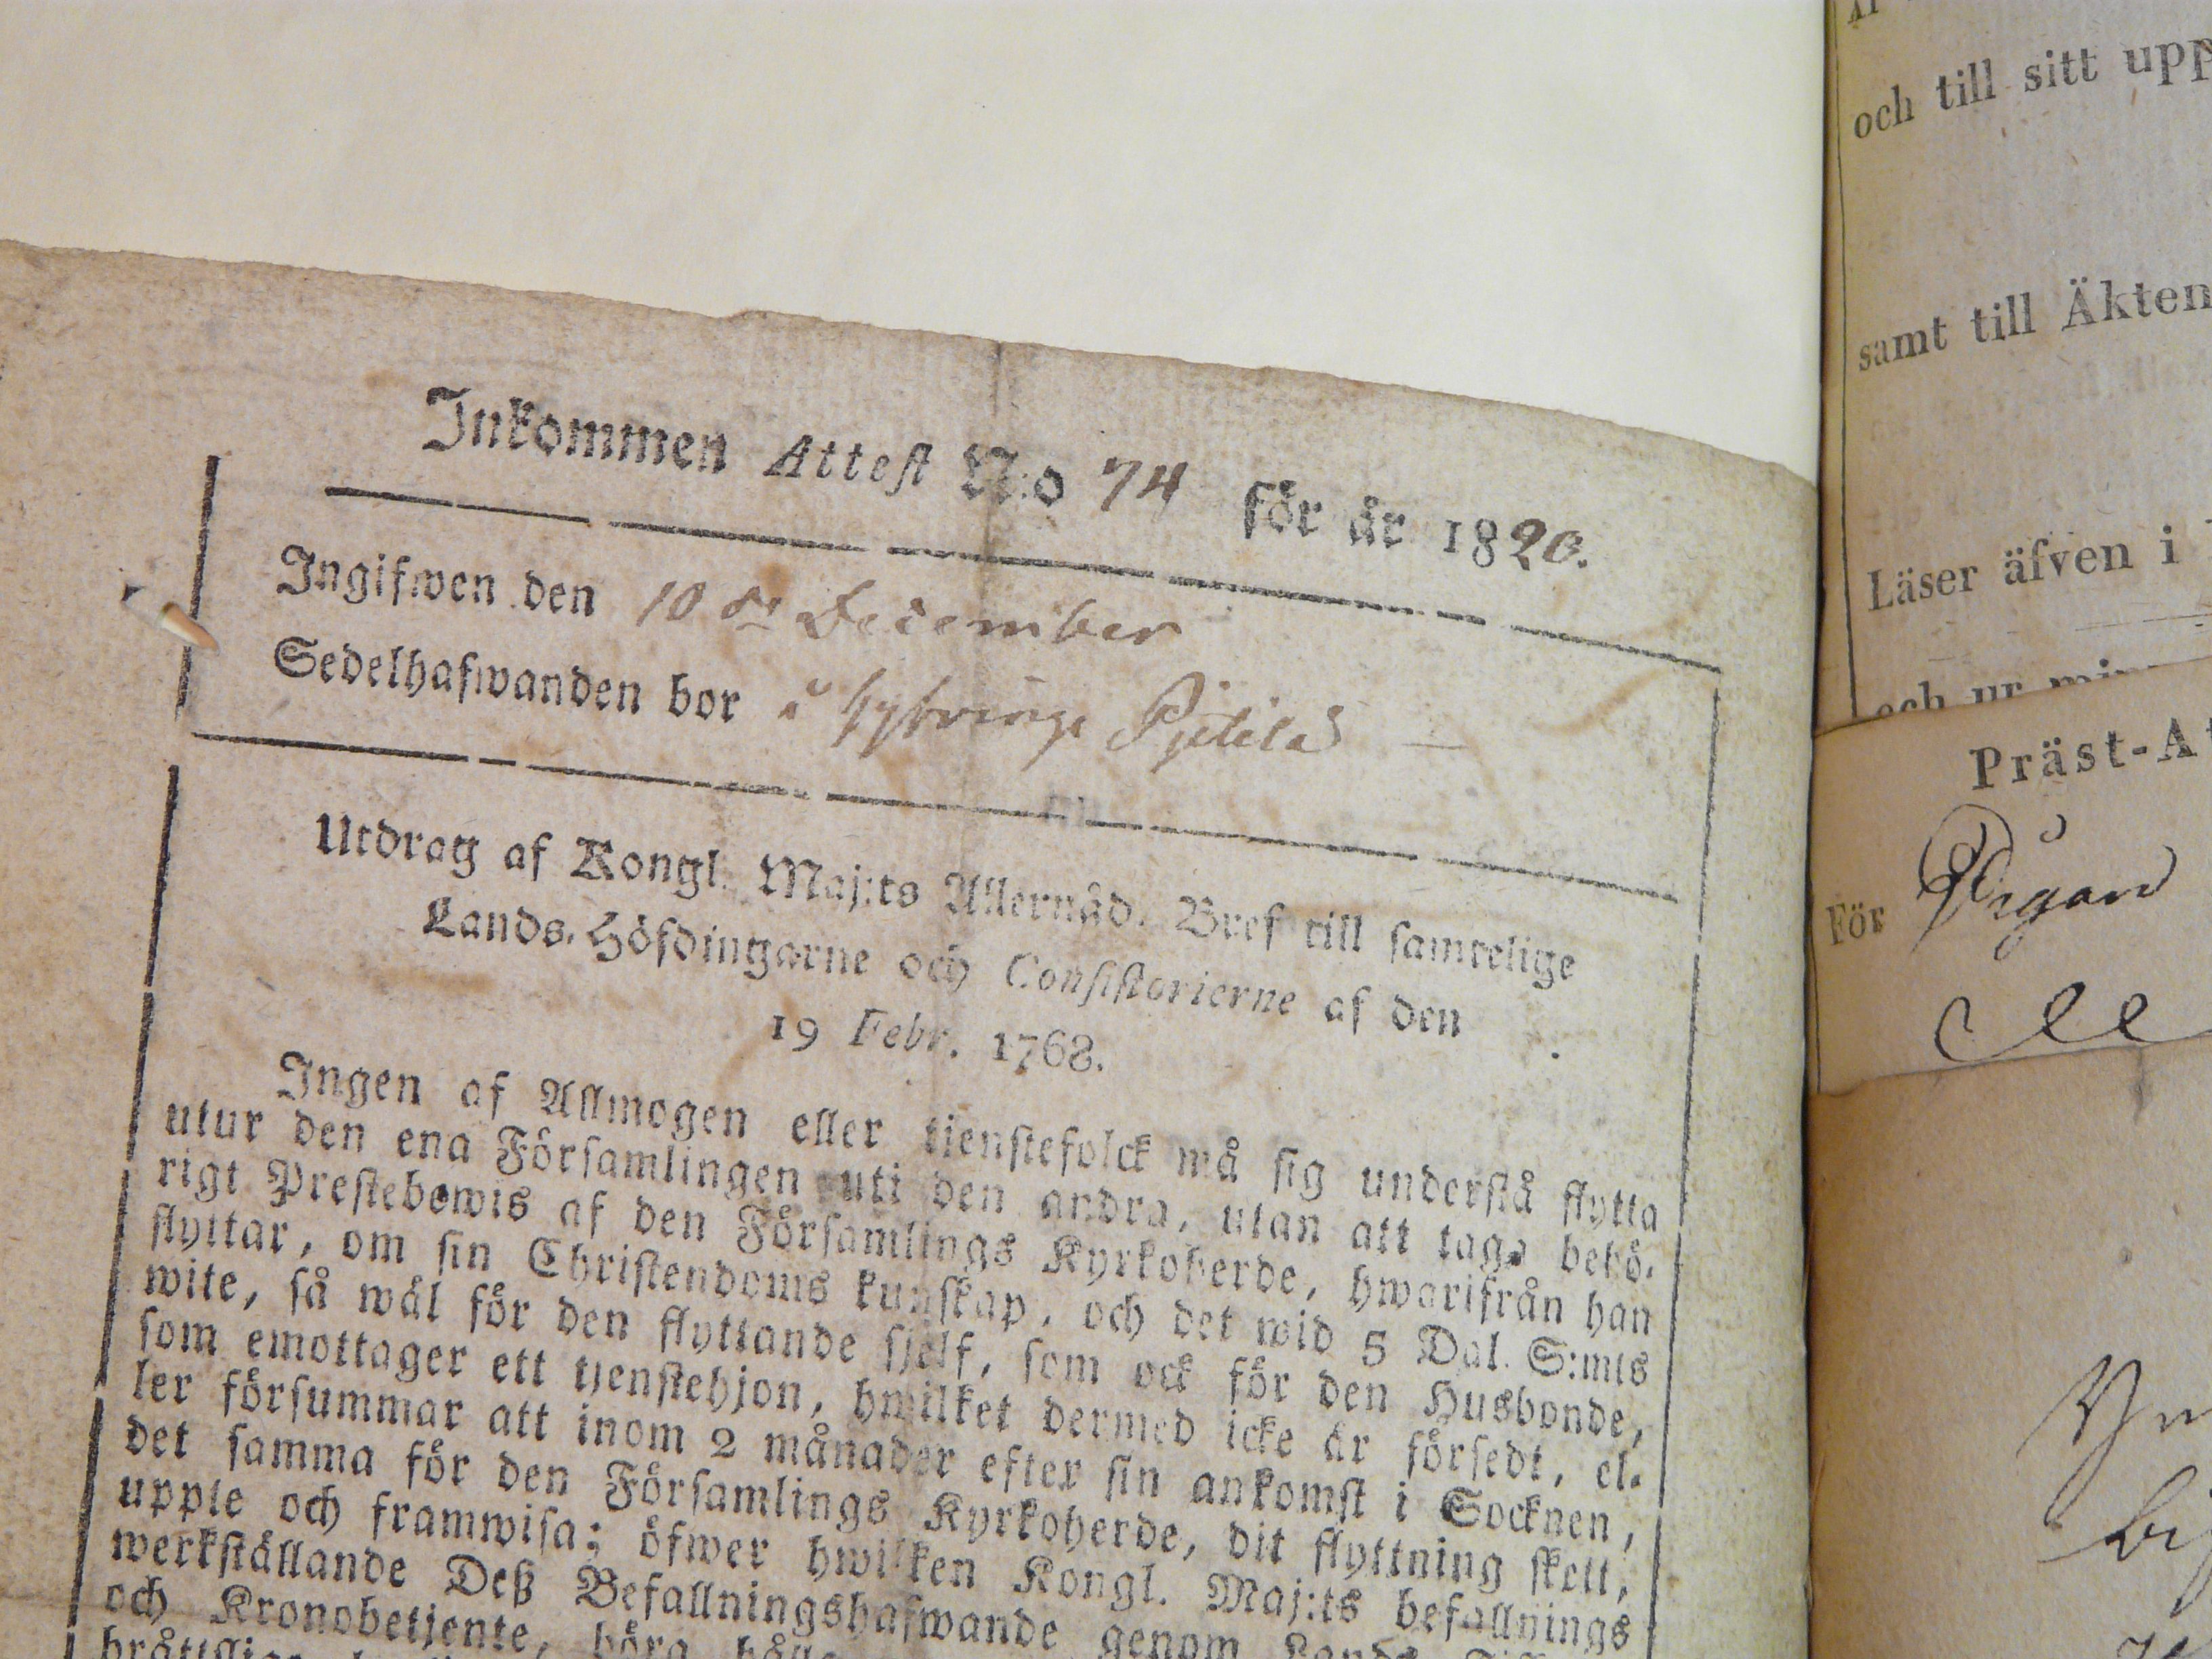 Inkommen Attest N:o 74 för år 1820.
Ingifwen den 10 de December
Sedelhafwanden bor i
Utdrag af Kongl. Maj:ts Allernåd. Bref till samtelige
Lands-Höfdingarne och Consistorierne af den
19 Febr. 1768.
Ingen af Allmogen eller tienstefolck må sig understå flytta
utur den ena Församlingen uti den andra, utan att taga behö-
rigt Prestebewis af den Församlings Kyrkoherde, hwarifrån han
flyttar, om sin Christendoms kunskap, och det wid 5 Dal. S:mts
wite, så wäl för den flyttande sjelf, som ock för den Husbonde,
som emottager ett tjenstehjon, hwilket dermed icke är försedt, el-
ler försummar att inom 2 månader efter sin ankomst i Socknen,
det samma för den Församlings Kyrkoherde, dit flyttning skett,
uppte och framwisa; öfwer hwilken Kongl. Maj:ts befallnings
werkställande Deß Befallningshafwande genom
och Kronobetjente, böra
och till sitt upp
samt till Äkten
Läser äfven i
och ur min
Präst-At
För Pigan